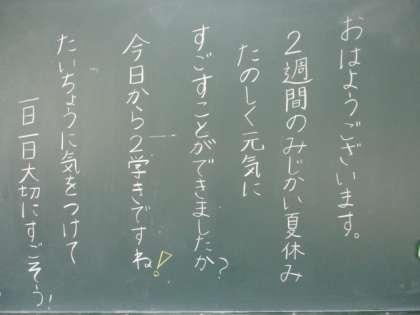 おはようございます。
2週間のみじかい夏休み
たのしく元気に
すごすことができましたか?
今日から2学きですね!
たいちょうに気をつけて
一日一日大切にすごそう!